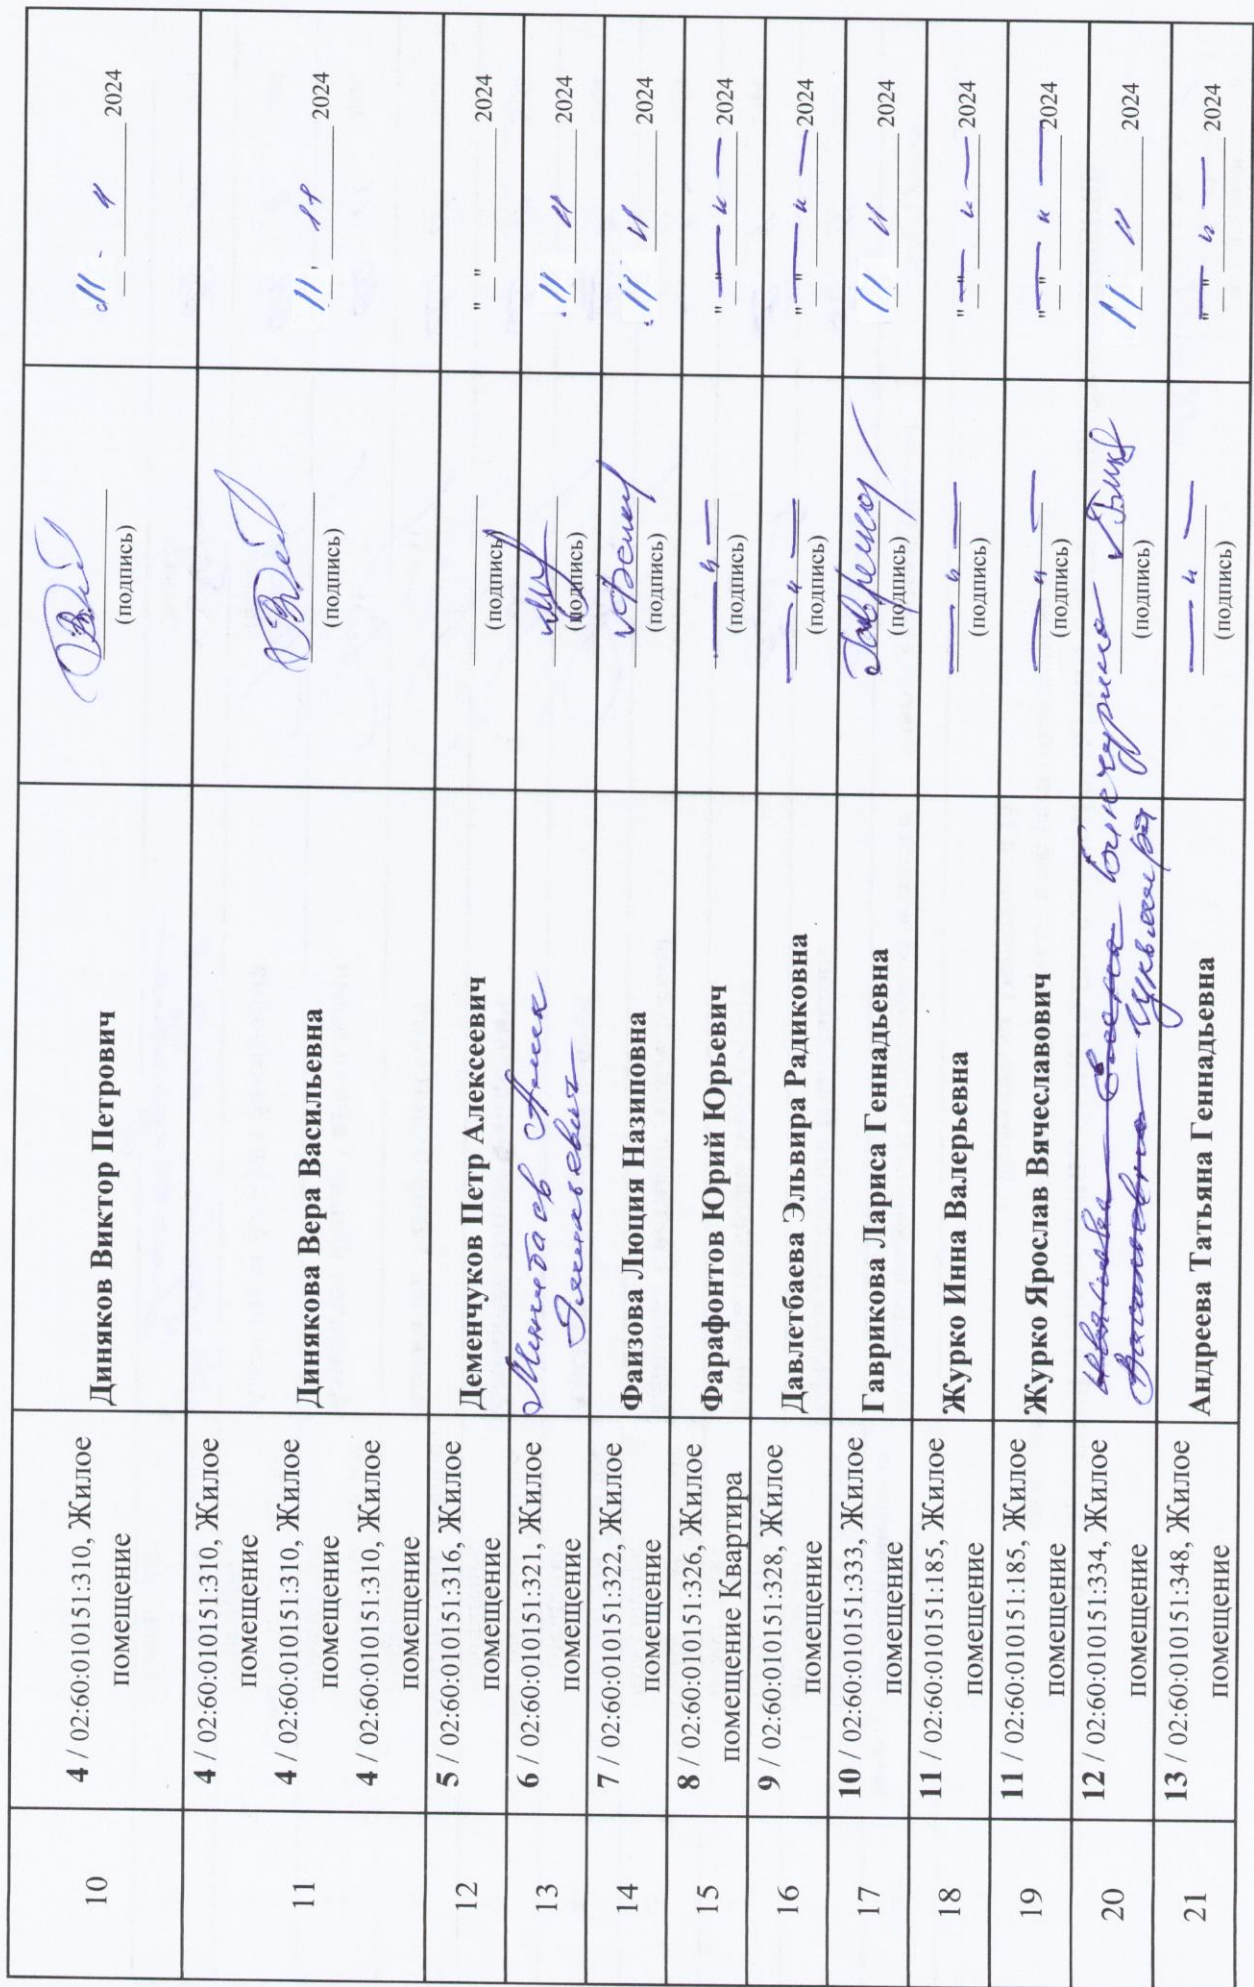 10
4 / 02:60:010151:310, Жилое
помещение
Диняков Виктор Петрович
(подпись)
11 11 2024
11
4 / 02:60:010151:310, Жилое
помещение
4 / 02:60:010151:310, Жилое
помещение
4 / 02:60:010151:310, Жилое
помещение
Динякова Вера Васильевна
(подпись)
11 11 2024
12
5 / 02:60:010151:316, Жилое
помещение
Деменчуков Петр Алексеевич
(подпись)
" " 2024
13
6 / 02:60:010151:321, Жилое
помещение
(подпись)
11 11 2024
14
7 / 02:60:010151:322, Жилое
помещение
Фаизова Люция Назиповна
(подпись)
11 11 2024
15
8 / 02:60:010151:326, Жилое
помещение Квартира
Фарафонтов Юрий Юрьевич
— " —
(подпись)
" — " — 2024
16
9 / 02:60:010151:328, Жилое
помещение
Давлетбаева Эльвира Радиковна
— " —
(подпись)
" — " — 2024
17
10 / 02:60:010151:333, Жилое
помещение
Гаврикова Лариса Геннадьевна
(подпись)
11 11 2024
18
11 / 02:60:010151:185, Жилое
помещение
Журко Инна Валерьевна
— " —
(подпись)
" — " — 2024
19
11 / 02:60:010151:185, Жилое
помещение
Журко Ярослав Вячеславович
— " —
(подпись)
" — " — 2024
20
12 / 02:60:010151:334, Жилое
помещение
(подпись)
11 11 2024
21
13 / 02:60:010151:348, Жилое
помещение
Андреева Татьяна Геннадьевна
— " —
(подпись)
" — " — 2024